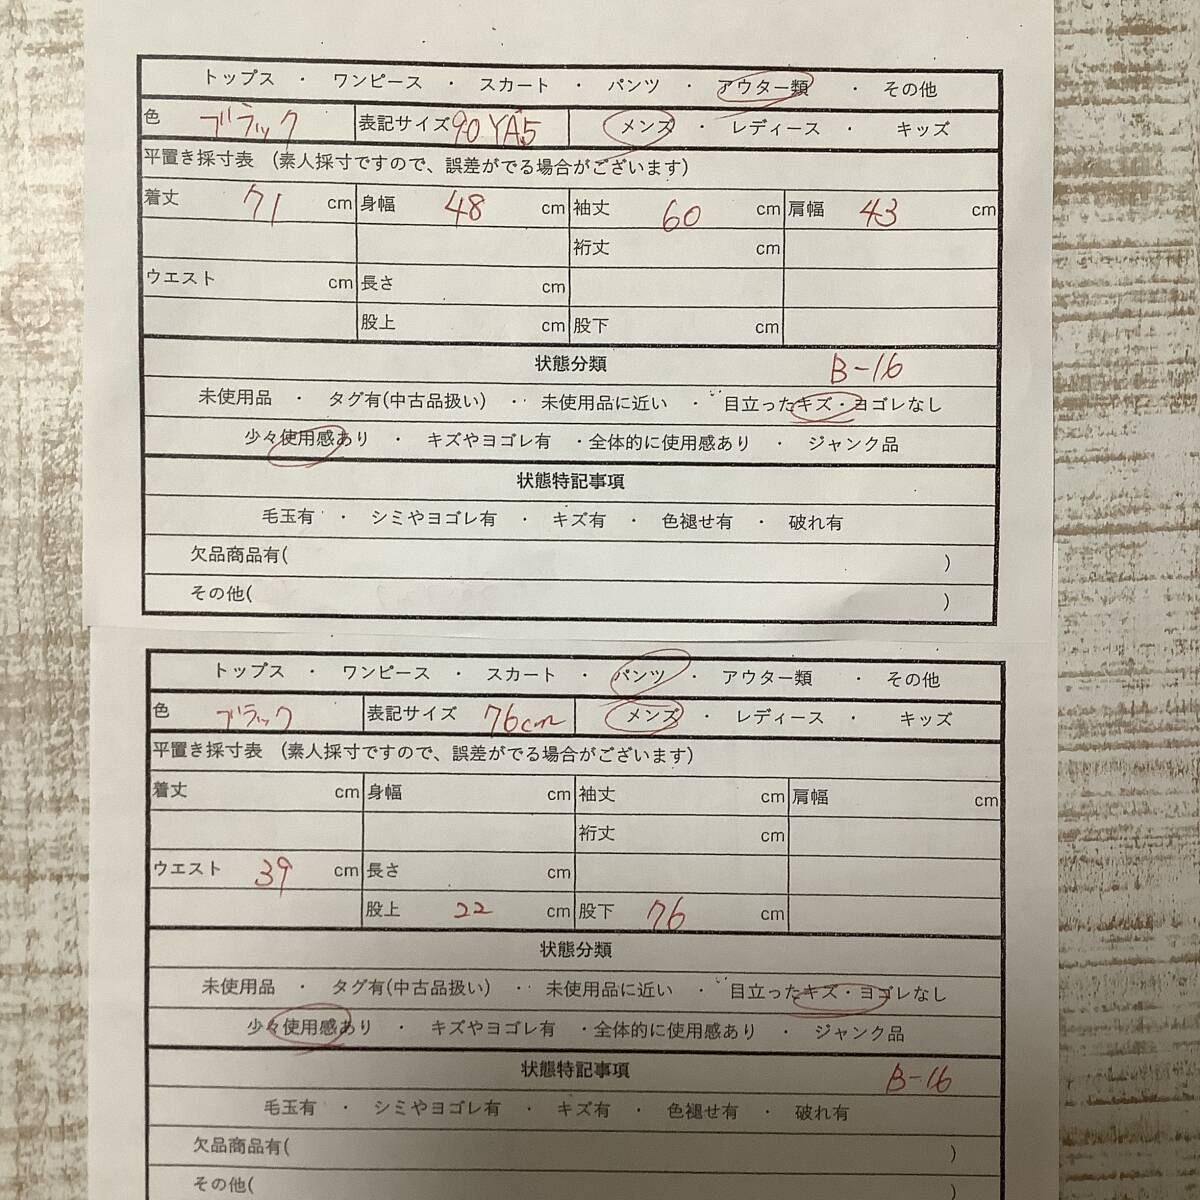 トップス ・ ワンピース ・ スカート ・ パンツ ・ アウター類 ・ その他
色 ブラック 表記サイズ 90YA5 メンズ ・ レディース ・ キッズ
平置き採寸表 (素人採寸ですので、誤差がでる場合がございます)
着丈 71 cm 身幅 48 cm 袖丈 60 cm 肩幅 43 cm
裄丈 cm
ウエスト cm 長さ cm
股上 cm 股下 cm
状態分類 B-16
未使用品 ・ タグ有(中古品扱い) ・・ 未使用品に近い ・ 目立ったキズ・ヨゴレなし
少々使用感あり ・ キズやヨゴレ有 ・全体的に使用感あり ・ ジャンク品
状態特記事項
毛玉有 ・ シミやヨゴレ有 ・ キズ有 ・ 色褪せ有 ・ 破れ有
欠品商品有( )
その他( )
トップス ・ ワンピース ・ スカート ・ パンツ ・ アウター類 ・ その他
色 ブラック 表記サイズ 76cm メンズ ・ レディース ・ キッズ
平置き採寸表 (素人採寸ですので、誤差がでる場合がございます)
着丈 cm 身幅 cm 袖丈 cm 肩幅 cm
裄丈 cm
ウエスト 39 cm 長さ cm
股上 22 cm 股下 76 cm
状態分類
未使用品 ・ タグ有(中古品扱い) ・・ 未使用品に近い ・ 目立ったキズ・ヨゴレなし
少々使用感あり ・ キズやヨゴレ有 ・全体的に使用感あり ・ ジャンク品
状態特記事項 B-16
毛玉有 ・ シミやヨゴレ有 ・ キズ有 ・ 色褪せ有 ・ 破れ有
欠品商品有( )
その他( )